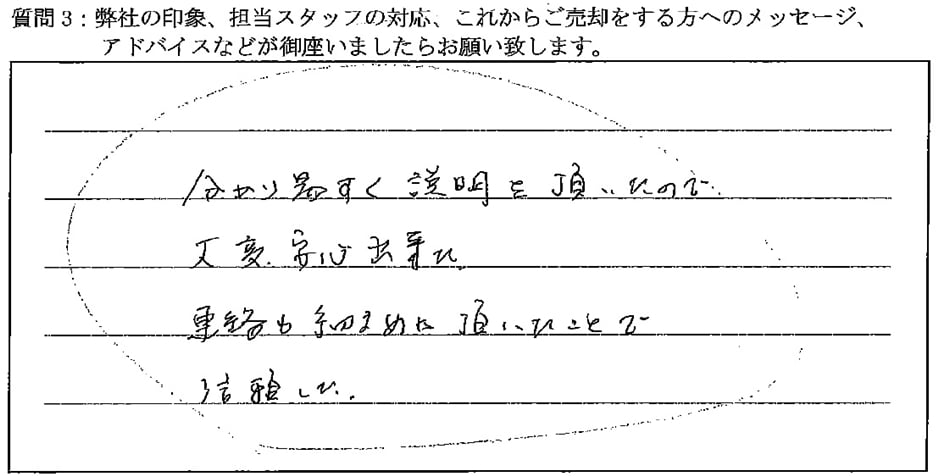 質問3:弊社の印象、担当スタッフの対応、これからご売却をする方へのメッセージ、
アドバイスなどが御座いましたらお願い致します。
分かり易すく説明を頂いたので、
大変安心出来た。
連絡も細まめに頂いたことで
信頼した。